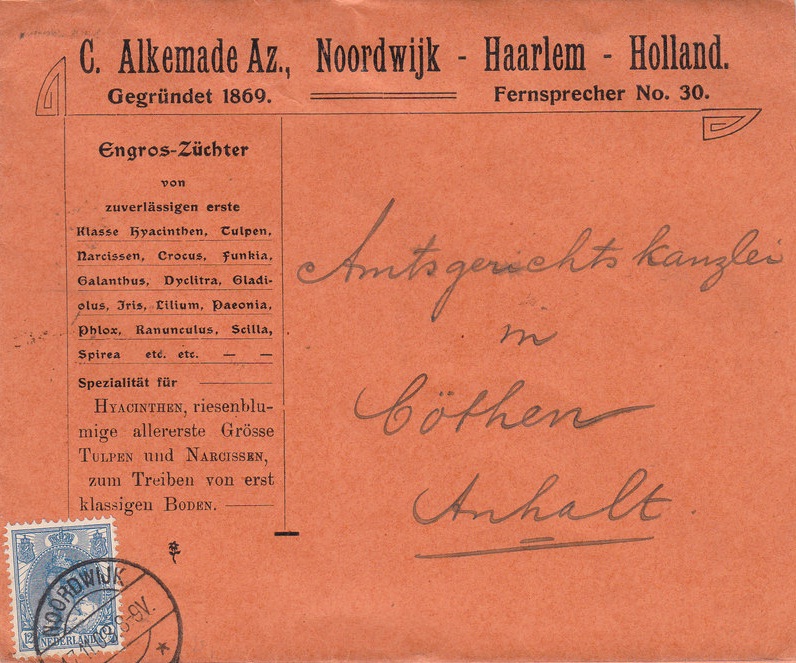 C. Alkemade Az., Noordwijk - Haarlem - Holland.
Gegründet 1869.
Fernsprecher No. 30.
Engros-Züchter
von
zuverlässigen erste
Klasse Hyacinthen, Tulpen,
Narcissen, Crocus, Funkia,
Galanthus, Dyclitra, Gladi-
olus, Iris, Lilium, Paeonia,
Phlox, Ranunculus, Scilla,
Spirea etc. etc. — —
Spezialität für
HYACINTHEN, riesenblu-
mige allererste Grösse
TULPEN und NARCISSEN,
zum Treiben von erst
klassigen BODEN.
Amtsgerichtskanzlei
in
Cöthen
Anhalt.
NOORDWIJK
8-9V.
NEDERLAND